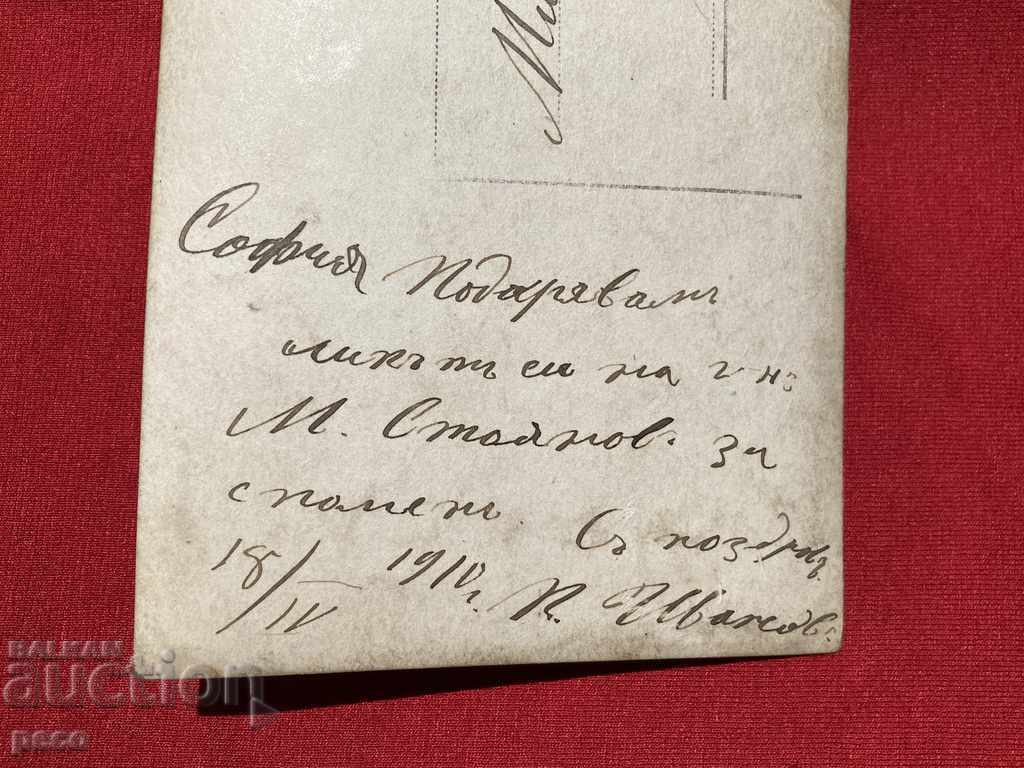 Ми
София Подарявамъ
ликътъ си на г-нъ
М. Стоянов. за
споменъ. Съ поздравъ.
18/IV 1910 г. К. Иванов.
BALKAN
auction
peso